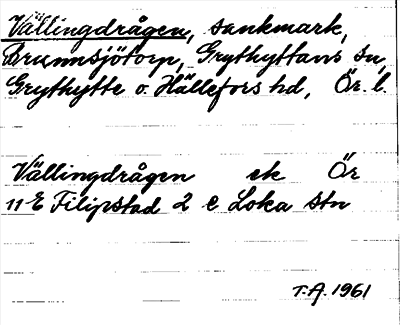 Vällingdrågen, sankmark,
Brunnsjötorp, Grythyttans sn,
Grythytte o. Hällefors hd, Ör. l.
Vällingdrågen ek Ör
11 E Filipstad 2 c Loka stn
T.A. 1961